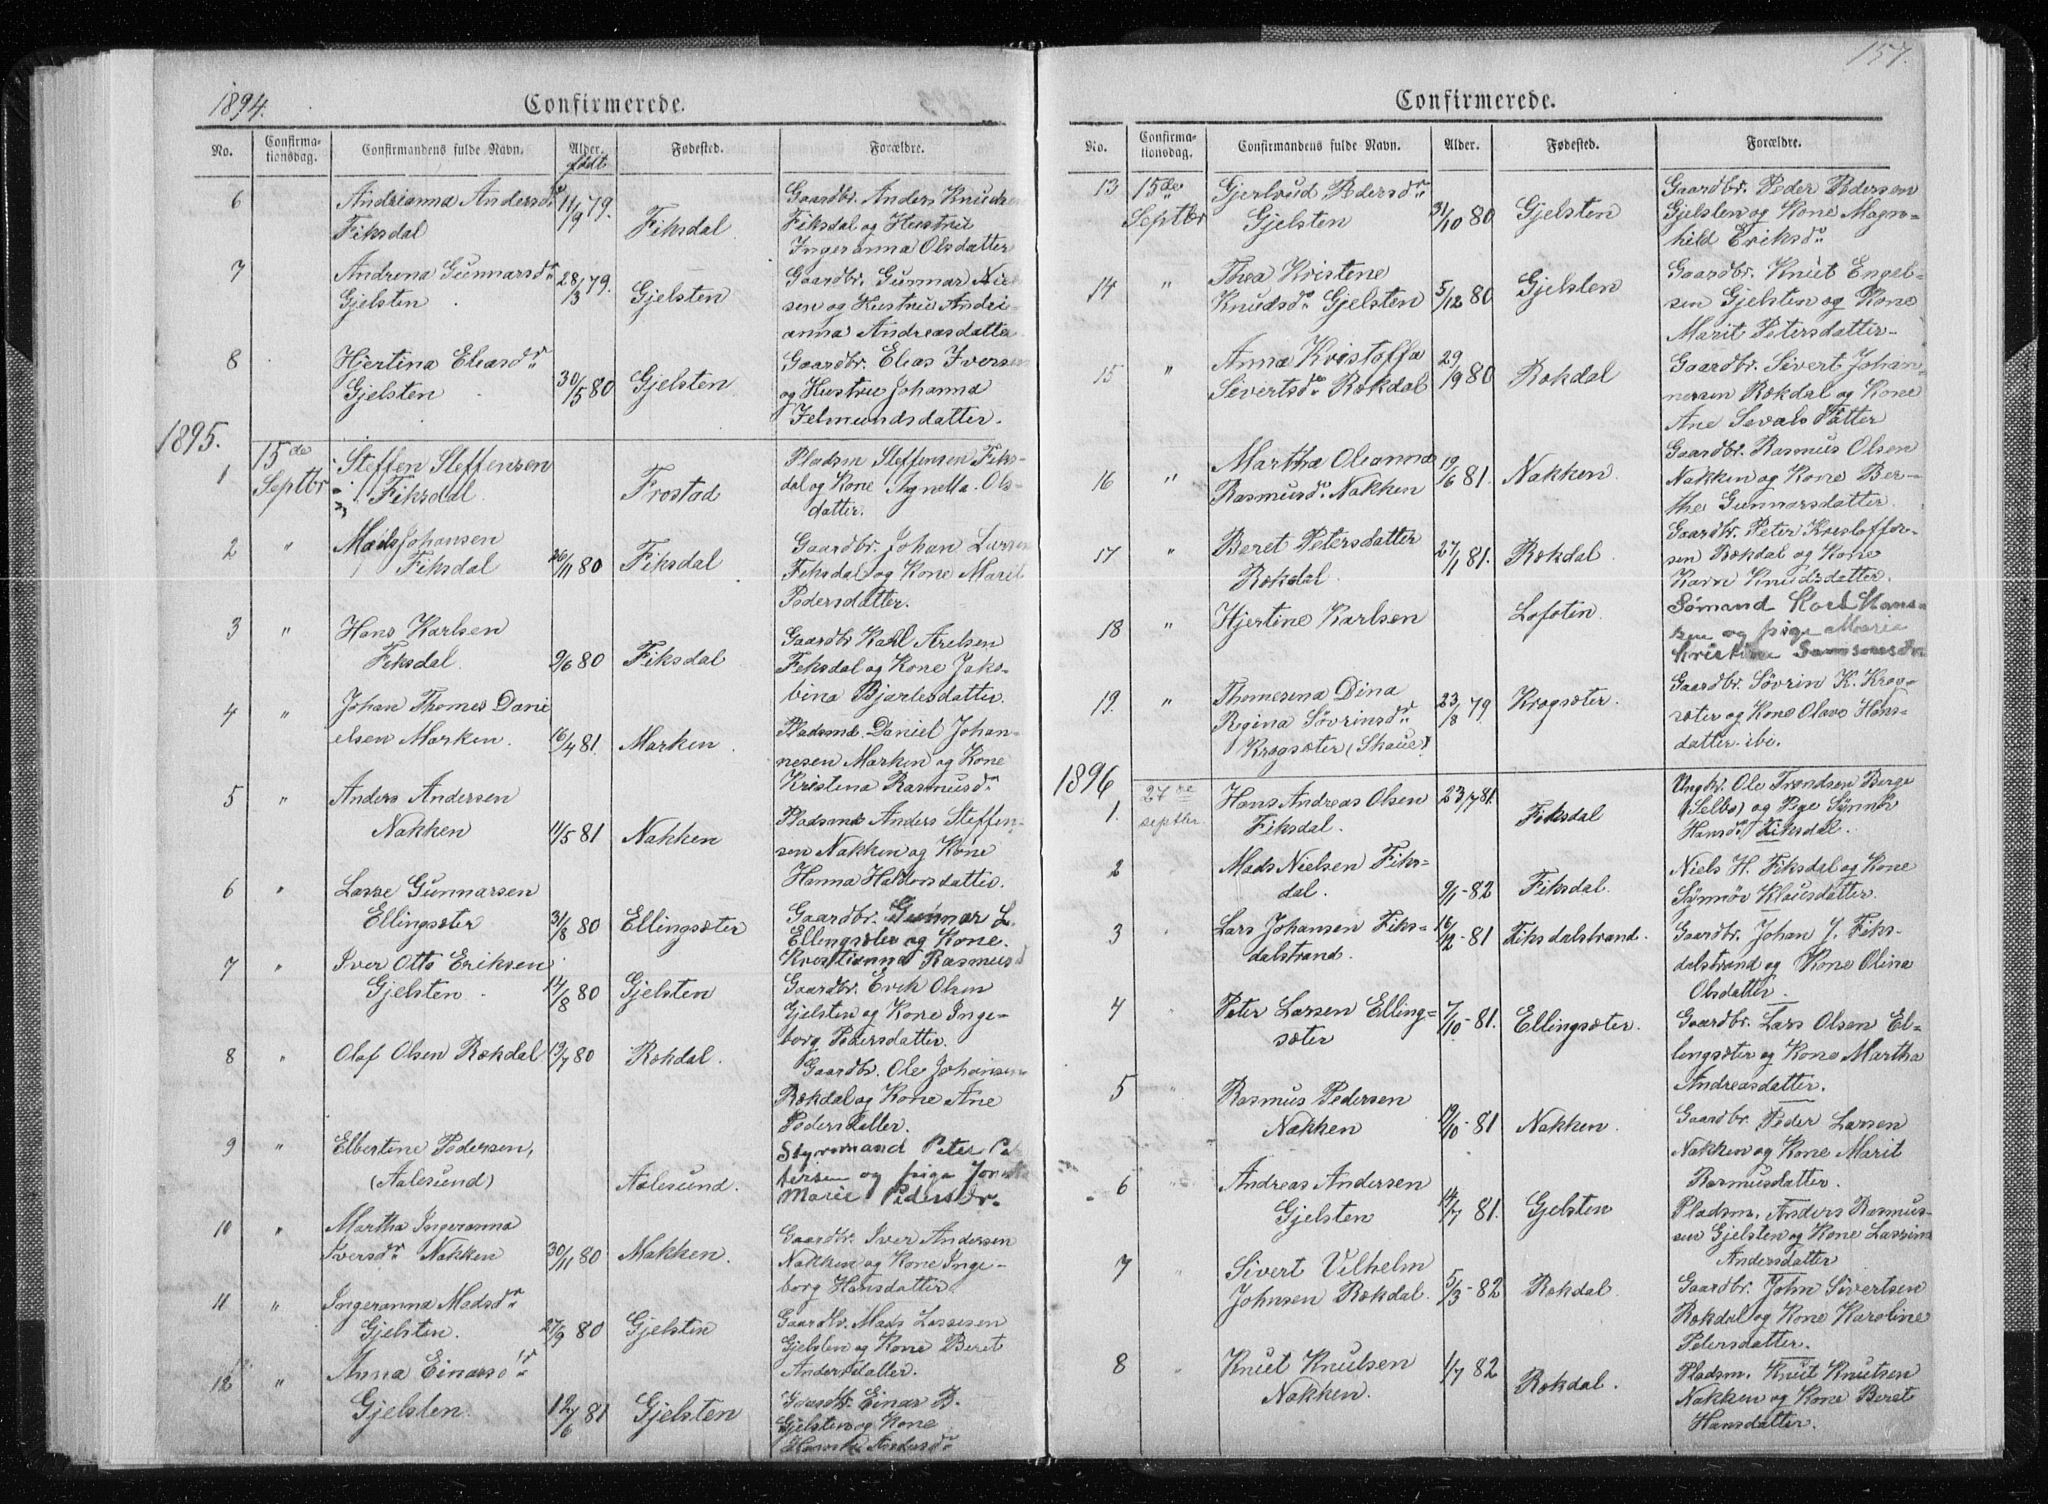 1894.
Confirmerede.
No.
Confirma-
tionsdag.
Confirmandens fulde Navn.
Alder.
født
Fødested.
Forældre.
6
Andrianna Andersdr
Fiksdal
11/9 79.
Fiksdal
Gaardbr. Anders Knudsen
Fiksdal og Hustru
Ingeranna Olsdatter
7
Andrena Gunnarsdr
Gjelsten
28/3 79.
Gjelsten
Gaardbr. Gunnar
sen og Hustru Andri-
anna Andreasdatter
8
Hjertina Eliasdr
Gjelsten
30/5 80
Gjelsten
Gaardbr. Elias Iversen
og Hustru Johanna
Jelmundsdatter.
1895.
1
15de
Septbr
Steffen Steffensen
Fiksdal.
Frostad
Pladsm Steffensen Fiks-
dal og Kone Agnella Ols-
datter.
2
"
Mads Johansen
Fiksdal
26/11 80
Fiksdal
Gaardbr. Johan Larsen
Fiksdal og Kone Marit
Pedersdatter.
3
"
Hans Karlsen
Fiksdal.
9/6 80
Fiksdal
Gaardbr Karl Arelsen
Feksdal og Kone Jako-
bina Bjartesdatter.
4
"
Johan Thomes Dani
elsen Marken.
16/4 81.
Marken
Pladsmd. Daniel Johan-
nesen Marken og Kone
Kristena Rasmusdr
5
"
Anders Andersen
Nakken
11/5 81
Nakken
Pladsmd Anders Steffen-
sen Nakken og Kone
Hanna Haldorsdatter.
6
"
Lasse Gunnarsen
Ellingsæter
31/8 80
Ellingsæter
Gaardbr. Gunnar L.
Ellingsæter og Kone.
Kristianna Rasmusd
7
"
Iver Otto Eriksen
Gjelsten
14/8 80
Gjelsten
Gaardbr. Erik Olsen
Gjelsten og Kone Inge-
borg Pedersdatter.
8
"
Olaf Olsen Rekdal
13/7 80
Rekdal.
Gaardbr. Ole Johansen
Rekdal og Kone Ane
Pedersdatter.
9
"
Elbertine Pedersen,
(Aalesund)
Aalesund.
Styrmand Peter Pe
tersen og pige
Marie Pedersdr.
10
"
Martha Ingeranna
Iversdr Nakken
30/11 80
Nakken.
Gaardbr. Iver Andersen
Nakken og Kone Inge-
borg Hansdatter
11
"
Ingeranna Madsdr
Gjelsten.
27/9 80
Gjelsten
Gaardbr. Mads Lassesen
Gjelsten og Kone Beret
Andersdatter.
12
"
Anna Einarsdr
Gjelsten.
12/6 81
Gjelsten
Gaardbr. Einar B.
Gjelsten og Kone
Andersdr
157.
Confirmerede.
No.
Confirma-
tionsdag.
Confirmandens fulde Navn.
Alder.
Fødested.
Forældre.
13
15de
Septbr
Gjertrud Pedersdr
Gjelsten
31/10 80
Gjelsten
Gaardbr. Peder Pedersen
Gjelsten og Kone Magn-
hild Eriksdr
14
"
Thea Kristene
Knudsdr Gjelsten
5/12 80
Gjelsten
Gaardbr. Knut Engel-
sen Gjelsten og Kone
Marit Petersdatter-
15
"
Anna Kristoffa
Sivertsdr Rekdal
29/9 80
Rekdal
Gaardbr. Sivert Johan-
nessen Rekdal og Kone
Ane Sevalsdatter
16
"
Martha Oleanna
Rasmusdr Nakken
19/6 81.
Nakken.
Gaardbr. Rasmus Olsen
Nakken og Kone Ber-
the Gunnarsdatter.
17
"
Beret Petersdatter
Rekdal.
27/1 81.
Rekdal.
Gaardbr. Peter Kristoffer-
sen Rekdal og Kone
Karn Knudsdatter.
18
"
Hjertine Karlsen
Lofoten
Sømand Karl Hans-
sen og pige Marie
Kristine Samsonsdr
19.
"
Thomesena Dina
Regina Søvrinsdr
Kragsæter (Skaue)
23/8 79
Kragsæter.
Gaardbr. Søvrin K. Krag-
sæter og Kone Olave Hans-
datter. ibi.
1896
1.
27de
septbr.
Hans Andreas Olsen
Fiksdal.
23/7 81.
Fiksdal
Ungkr. Ole Trondsen Berge
(Selbo) og Pige Synnøv
Hansdr Fiksdal.
2
Mads Nielsen Fiks=
dal.
9/1-82
Fiksdal.
Niels H. Fiksdal og Kone
Synnøv Klausdatter.
3
"
Lars Johansen Fiks-
dalstrand.
16/2-81
Fiksdalstrand.
Gaardbr. Johan J. Fiks-
dalstrand og Kone Olina
Olsdatter.
4
"
Peter Larsen Elling=
sæter
7/10-81.
Ellingsæter.
Gaardbr. Lars Olsen El-
lingsæter og Kone Martha
Andreasdatter.
5
"
Rasmus Pedersen
Nakken
19/10-81
Nakken.
Gaardbr. Peder Larsen
Nakken og Kone Marit
Rasmusdatter.
6
Andreas Andersen
Gjelsten
14/7 81.
Gjelsten
Pladsm. Anders Rasmus-
sen Gjelsten og Kone Lassina
Andersdatter
7
"
Sivert Vilhelm
Johnsen Rekdal.
5/3-82
Rekdal.
Gaardbr. John Sivertsen
Rekdal og Kone Karoline
Petersdatter.
8
"
Knut Knutsen
Nakken.
1/7 82
Rekdal.
Pladsm. Knut Knutsen
Nakken og Kone Beret
Hansdatter.